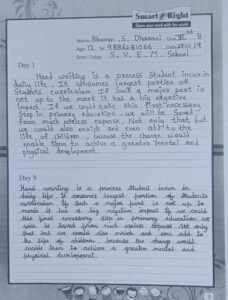 Smart Right
Share your mind with the world
Name: Bhavan . S . Dharani Gn: VII B
Age: 12 No: 9886281066 Date: 19
School / College: S . V . E . M . School
Day 1
Hand writing is a process Student incur in
daily life. It consumes largest portion of
Students curriculum. If Such a major part is
not up to the mark it has a big negative
impact. If we could take this first necessary
Step in primary education. we will be Saved
from much useless expense. Not only that, but
we would also enrich and even add to the
life of children because the change would
enable them to achieve a greater mental and
physical development.
Day 9
Hand writing is a process Student incur in
daily life It consumes largest portion of students
curriculum If Such a major part is not up to
mark it has a big negative impact If we could
this first necessary step in primary education we
will be saved from such useless expense Not only
that but we would also enrich and even add to
the life of children, because the change would
enable them to achieve a greater mental and
physical development